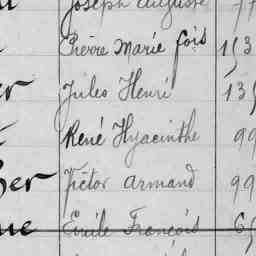 Joseph Auguste 77
Pierre Marie fois 153
er Jules Henri 135
René Hyacinthe 99
ser Victor Armand 99
ue Emile François 65